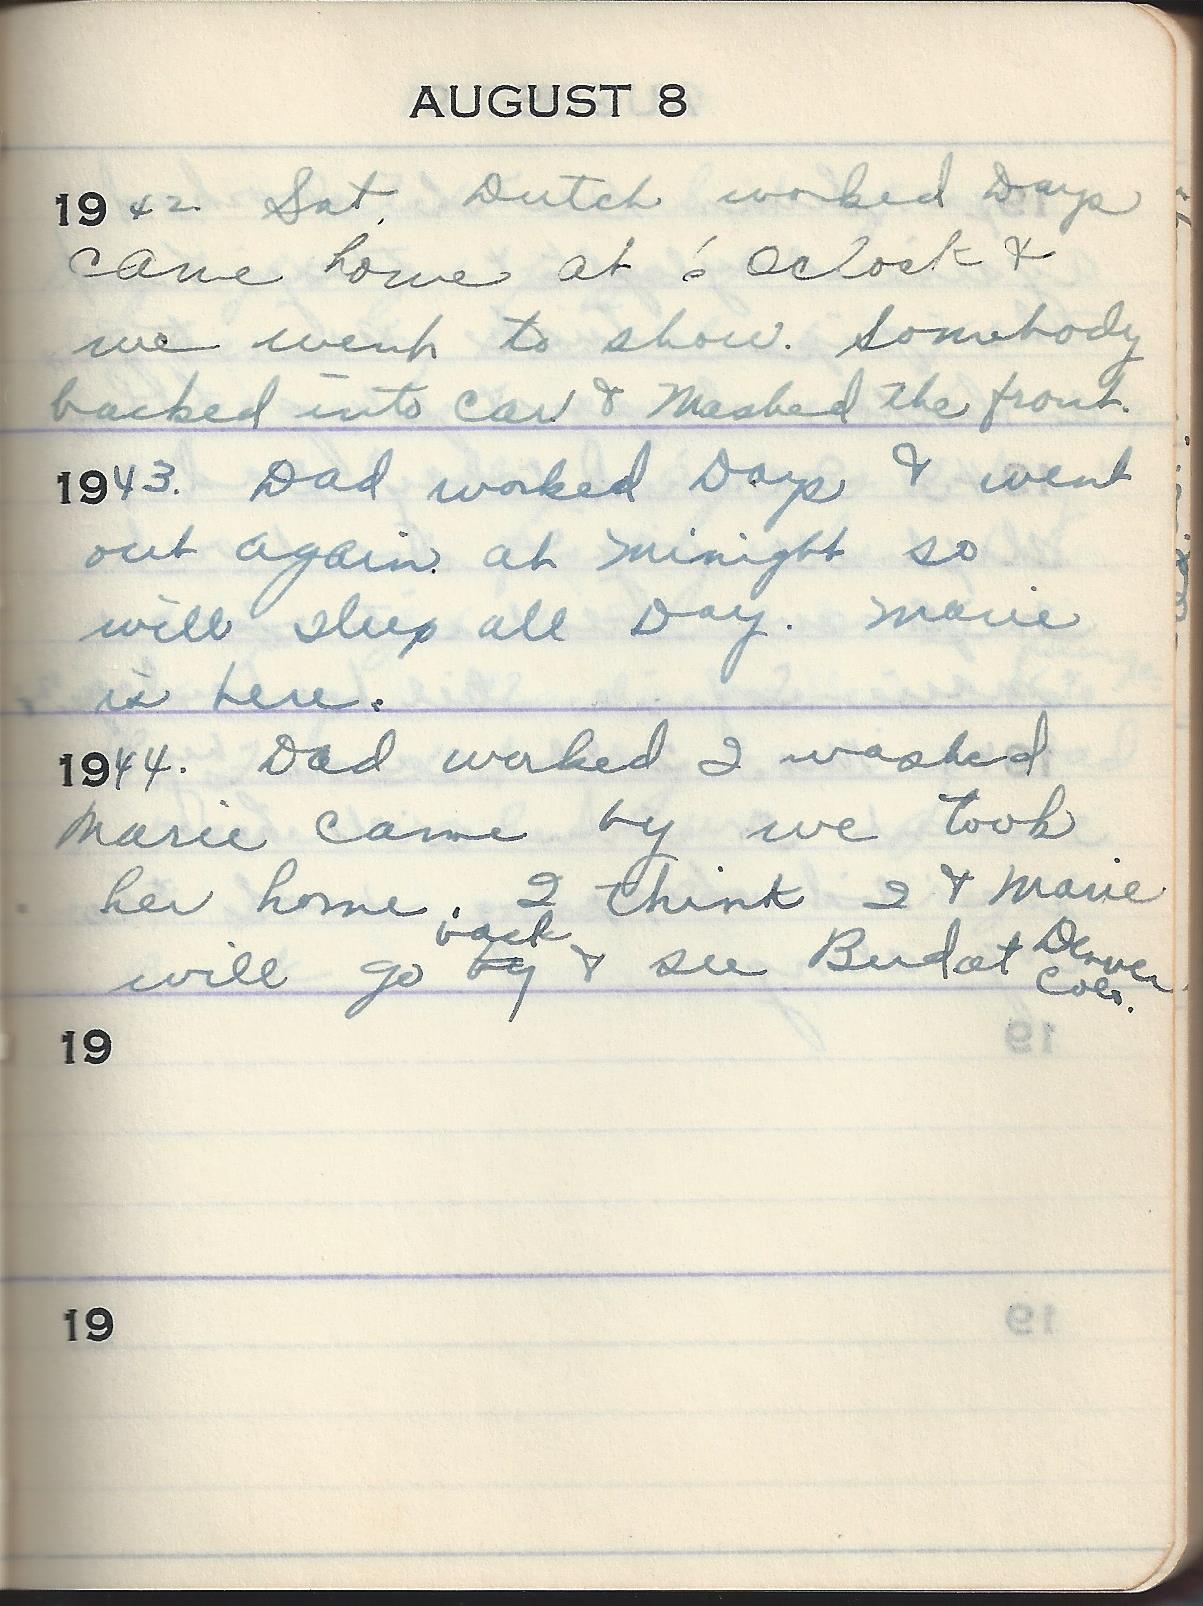 AUGUST 8
1942 Sat. Dutch worked Days
came home at 6 Oclock &
we went to show. Somebody
backed into car & Mashed the front.
1943. Dad worked Days & went
out again. at minight so
will sleep all Day. Marie
is here.
1944. Dad worked I washed
Marie came by we took
her home. I think I & Marie
will go by back & see Bud at Denver
Colo.
19
19